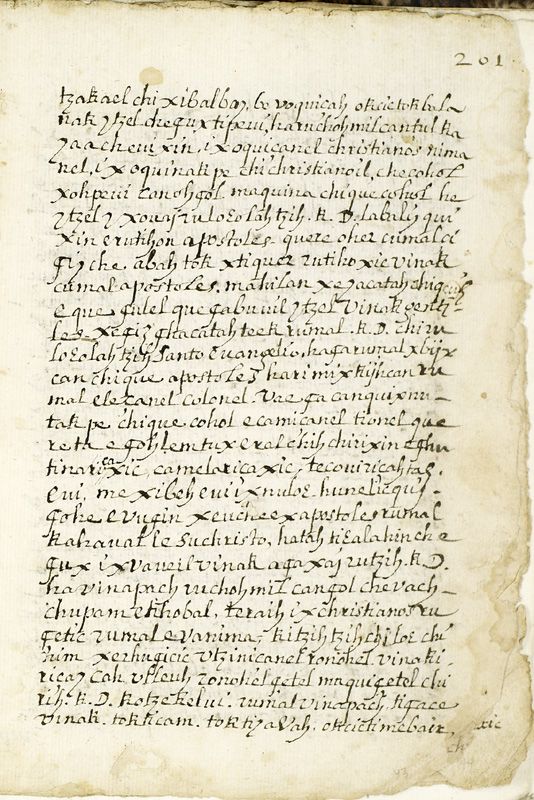 201.
tzakael chi xibalbay, bo voquicah okcietok bala
nak ytzel che gux tipeui, ha mchoh mil cantul ka
yaache ui xin, i xoquicanel christianos nima
nel, i xoquinak pe chi christianoil, che cohol
xohpeui canohgol maquina chique cohol he
ytzel y xovaj ru lo Eolah tzih. k. D. labaliy qui
xin e rutihon apostoles. quere oher cumal ci
giy che, abah tok xtiquer rutiho xic vinak
cumal apostoles. mahilan xeyacatah chigcux
e que gulel que gabuuil ytzel vinak genti-
les xegiy ghacatah teek rumal. k. D. chi ru
lo Eolah tzih santo Euangelio, haga rumal xbijx
can chique apostoles hari mixkijhcan ru
mal ele canel colonel. Vae ga canquixnu-
tak pe chique cohol e camicanel tionel que
re ta e gohlem tux e ral chih chirixin e ghu
tinarica xic, camelarica xic, tecouiricah tas.
e ui, me xibeh e ui ix nuloE. hunelic qui
gohe e vugin xeuchee x apostoles rumal
Kahaual Je su christo, hatah ti Eala hin che
gux i xvaueil vinak agaxaj rutzih. k. D.
ha vinapach ru choh mil can gol che vach-
chupam etihobal, teraih ix christianos ru
getic rumal e vanima, ki tzih tzih chi loE chi
rium xerhugicic vtzinicanel ronohel. vinaki-
ricay cah. vleuh ronohel getel maqui getel chi
rih. k. D. kotzekel ui. rumal vinapach, tigace
vinak. tok ticam. tok tiya vah. okcictimebair,